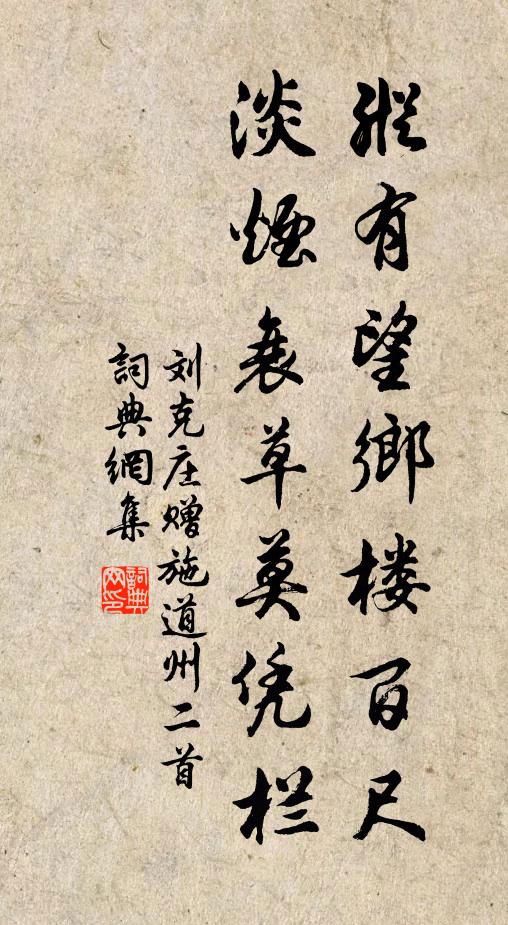 縱有望鄉楼百尺
淡煙衰草莫凭栏
刘克庄赠施道州二首
詞典網集
詞典
网印